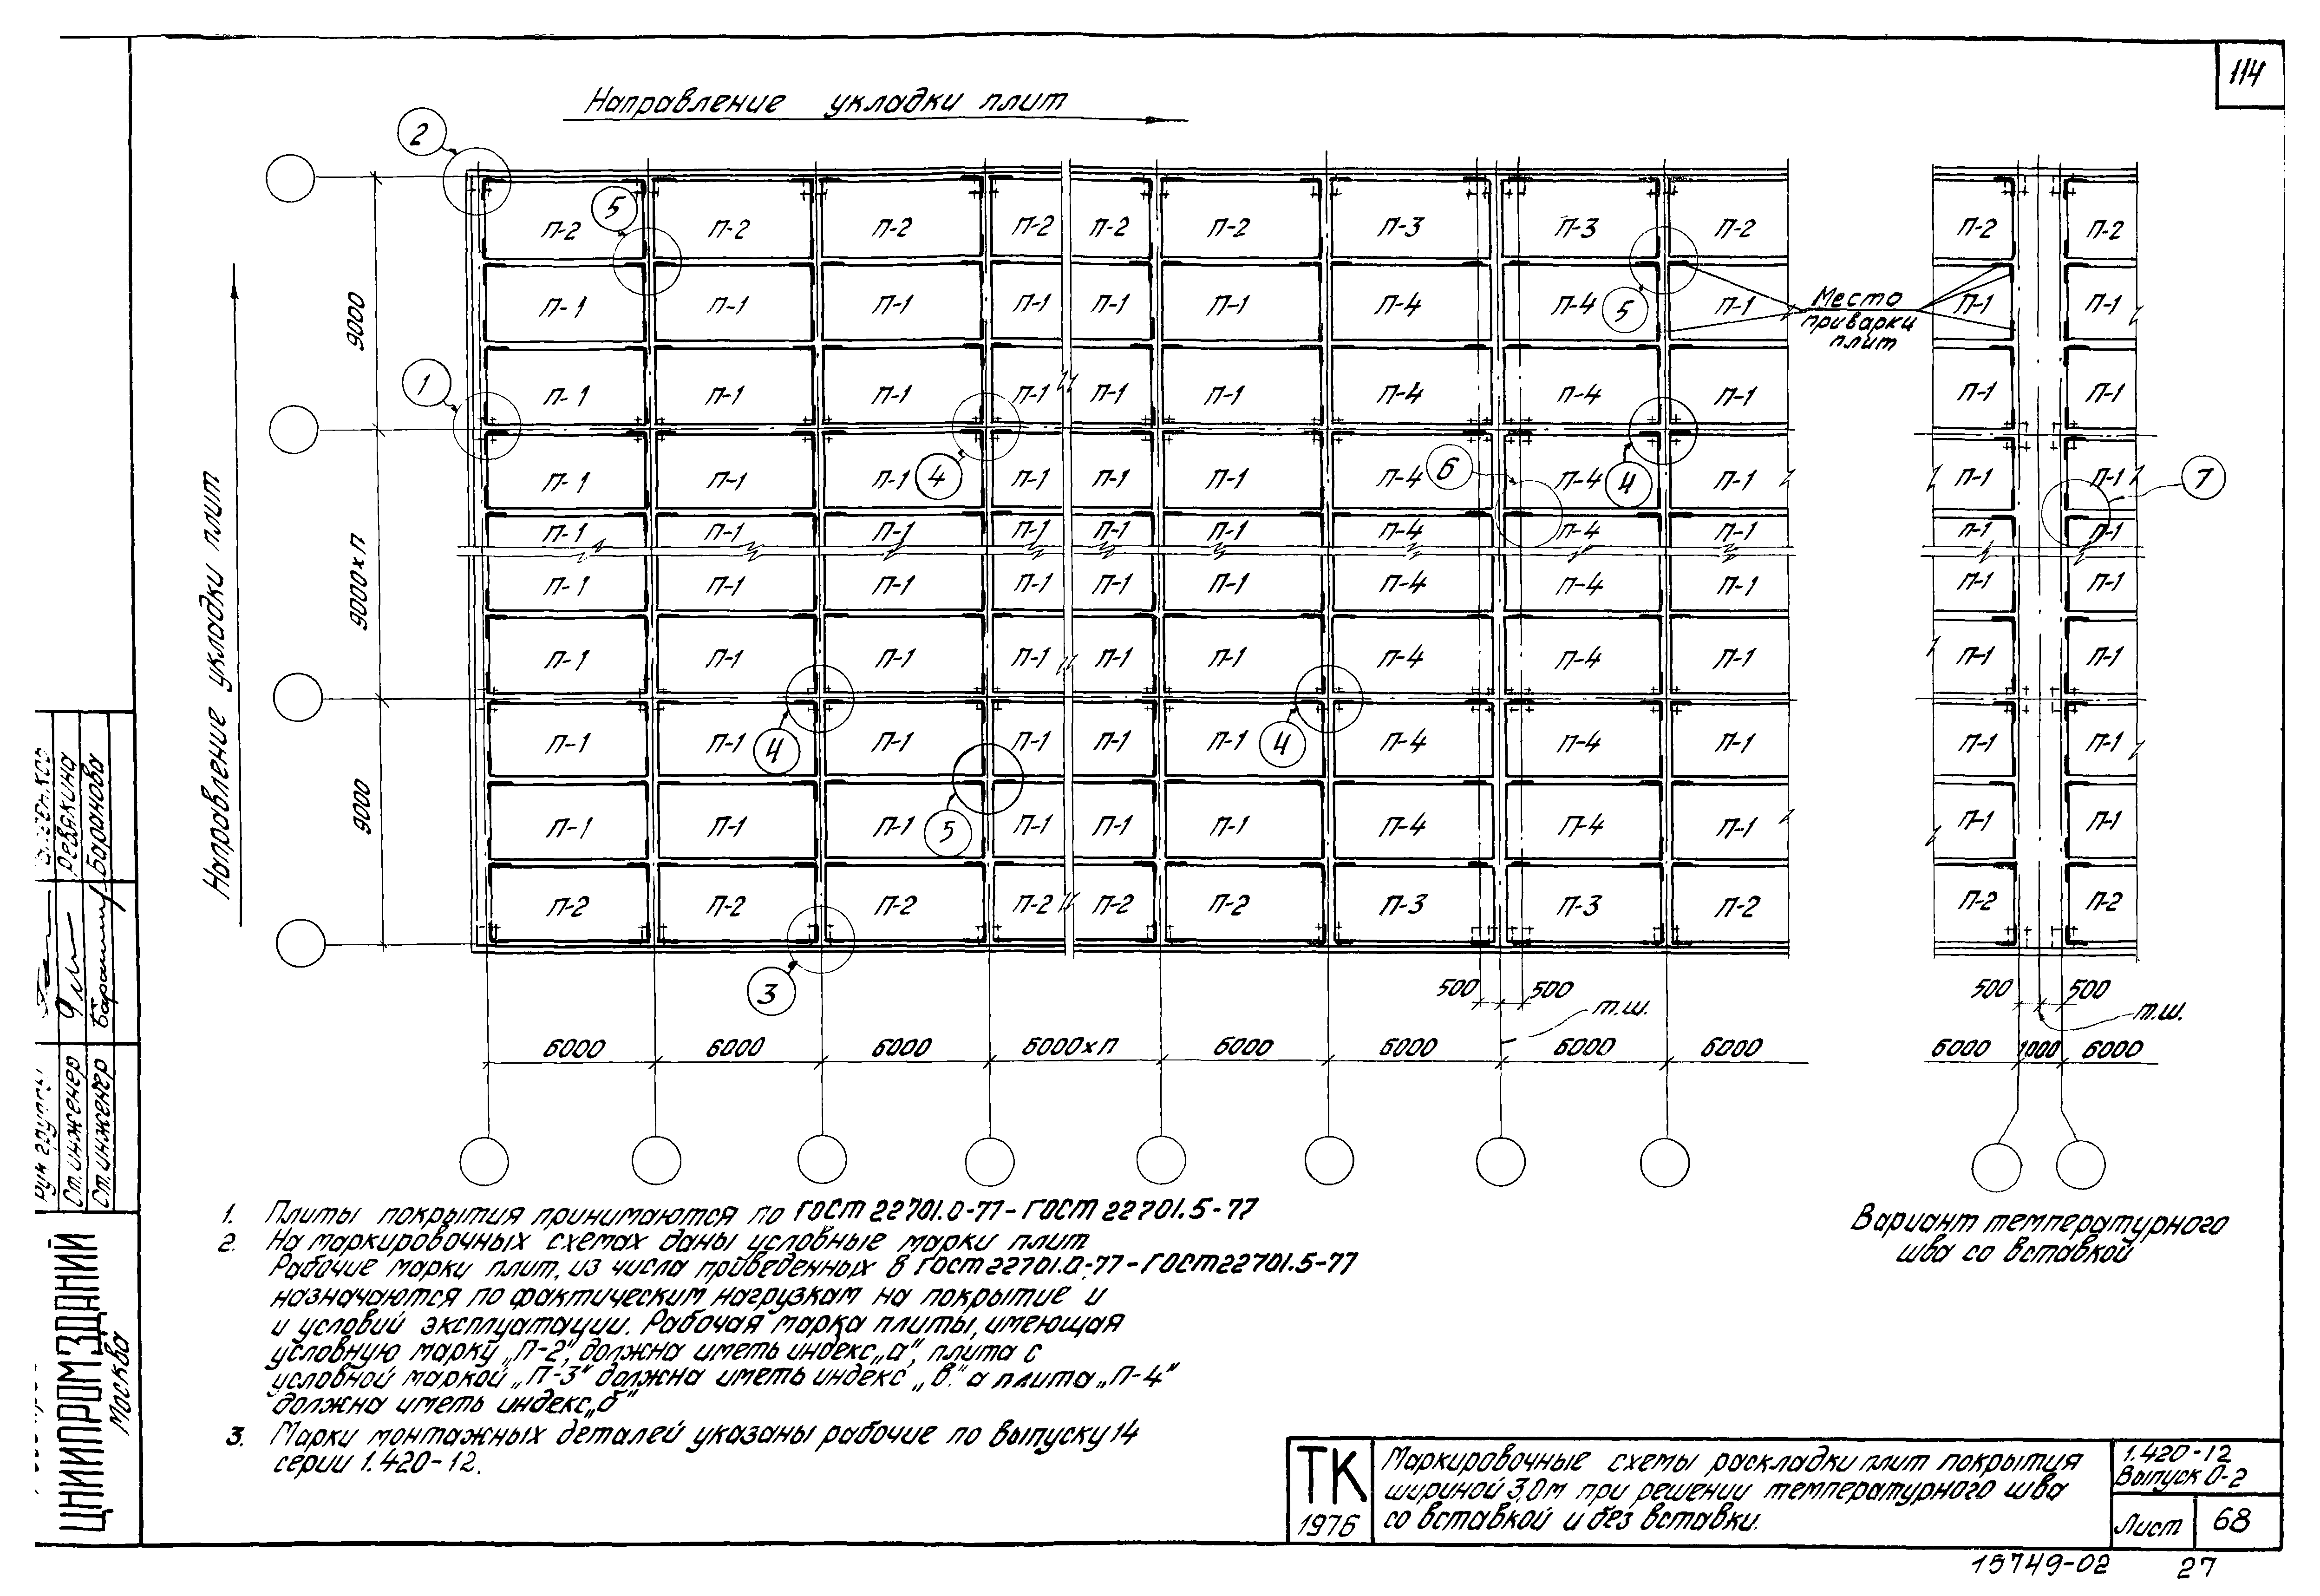 114
Направление укладки плит
2
5
П-2 П-2 П-2 П-2 П-2 П-2 П-3 П-3 П-2 П-2 П-2
П-1 П-1 П-1 П-1 П-1 П-1 П-4 П-4 5 П-1 П-1 П-1
Место
приварки
плит
9000
1
П-1 П-1 П-1 П-1 П-1 П-1 П-4 П-4 П-1 П-1 П-1
П-1 П-1 П-1 4 П-1 П-1 П-1 П-4 6 П-4 4 П-1 П-1 П-1 7
П-1 П-1 П-1 П-1 П-1 П-1 П-4 П-4 П-1 П-1 П-1
9000хп
П-1 П-1 П-1 П-1 П-1 П-1 П-4 П-4 П-1 П-1 П-1
П-1 П-1 П-1 П-1 П-1 П-1 П-4 П-4 П-1 П-1 П-1
Направление укладки плит
П-1 П-1 4 П-1 П-1 П-1 П-1 4 П-4 П-4 П-1 П-1 П-1
9000
П-1 П-1 П-1 5 П-1 П-1 П-1 П-4 П-4 П-1 П-1 П-1
П-2 П-2 П-2 П-2 П-2 П-2 П-3 П-3 П-2 П-2 П-2
3
500 500 500 500
т.ш. т.ш.
6000 6000 6000 6000хп 6000 6000 6000 6000 6000 1000 6000
Вариант температурного
шва со вставкой
1. Плиты покрытия принимаются по ГОСТ 22701.0-77-ГОСТ 22701.5-77
2. На маркировочных схемах даны условные марки плит
Рабочие марки плит, из числа приведенных в ГОСТ 22701.0-77-ГОСТ 22701.5-77
назначаются по фактическим нагрузкам на покрытие и
и условий эксплуатации. Рабочая марка плиты, имеющая
условную марку „П-2", должна иметь индекс „а", плита с
условной маркой „П-3" должна иметь индекс „в." а плита „П-4"
должна иметь индекс „б"
3. Марки монтажных деталей указаны рабочие по выпуску 14
серии 1.420-12.
Рук группы
Ст. инженер Ревякина
Ст. инженер Баранова
ЦНИИПРОМЗДАНИЙ
Москва
ТК
1976
Маркировочные схемы раскладки плит покрытия
шириной 3,0м при решении температурного шва
со вставкой и без вставки.
1.420-12
Выпуск 0-2
Лист 68
15749-02 27